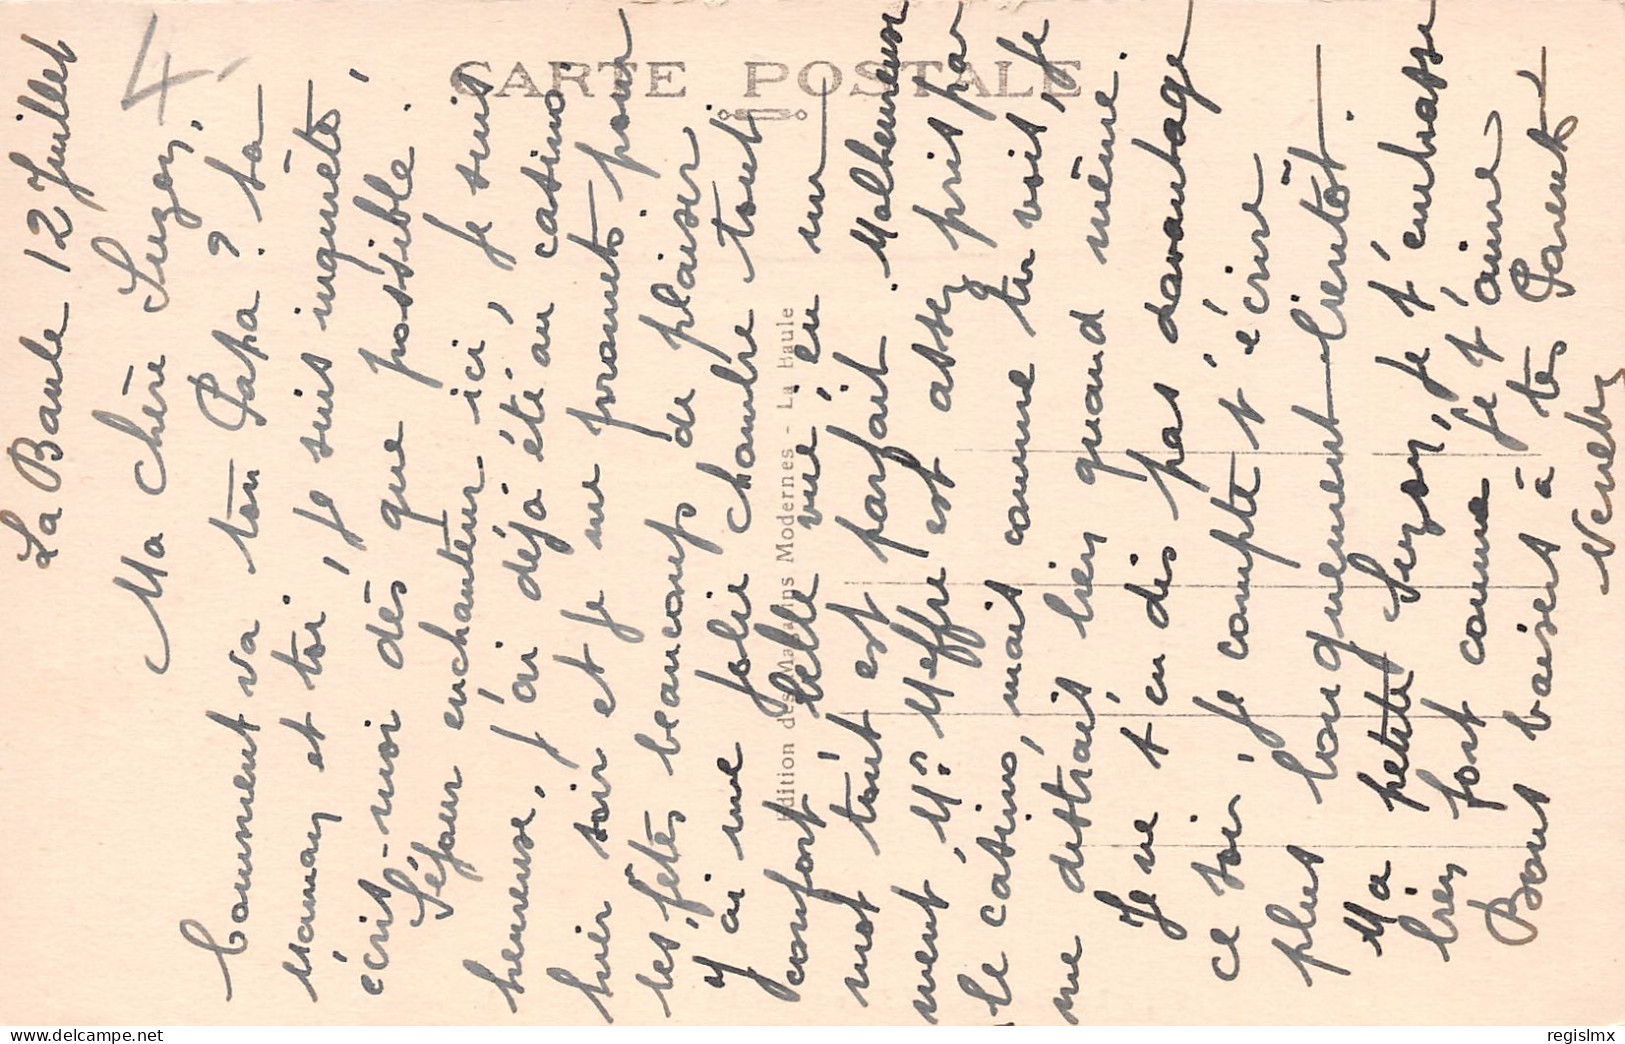 La Baule 12 Juillet
4.-
Ma chère Suzon,
Comment va ton Papa ? ta
maman et toi, je suis inquiète,
écris-moi dès que possible.
Séjour enchanteur ici, je suis
heureuse, j'ai déjà été au casino
hier soir et je me promets pour
les fêtes beaucoup de plaisir
J'ai une jolie chambre tout
confort belle vue, en un
mot tout est parfait. Malheureuse
ment, Mr Meffre est assez pris par
le casino, mais comme tu vois, je
me distrais bien quand même.
Je ne t'en dis pas davantage
ce soir, je compte t'écrire
plus longuement bientôt.
Ma petite Suzon, je t'embrasse
bien fort comme je t'aime
Bons baisers à tes Parents
CARTE POSTALE
Edition des Magasins Modernes - La Baule
regislmx